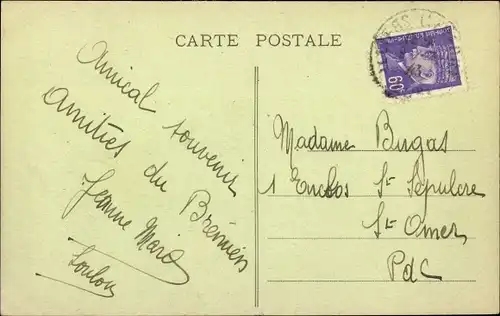 CARTE POSTALE
Amical souvenir
Amitiés du
Jeanne
Toulon
60
Madame Bugas
1 Enclos St Sépulcre
St Omer
PdC